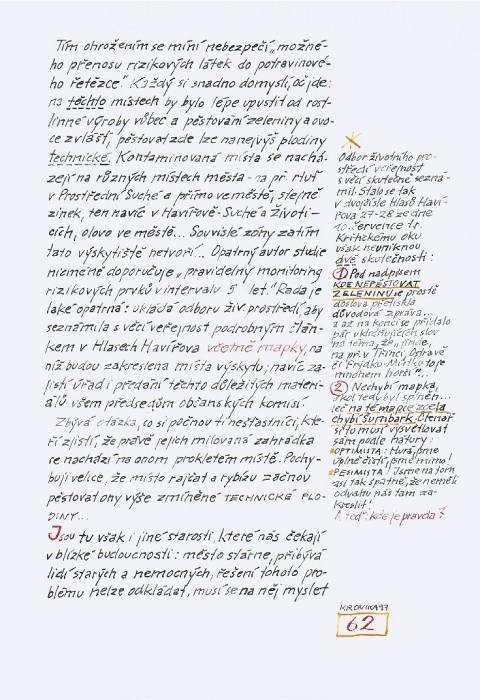 Tím ohrožením se míní nebezpečí „možné-
ho přenosu rizikových látek do potravinové-
ho řetězce." Každý si snadno domyslí, oč jde:
na těchto místech by bylo lépe upustit od rost-
linné výroby vůbec a pěstování zeleniny a ovo-
ce zvlášť, pěstovat zde lze nanejvýš plodiny
technické. Kontaminovaná místa se nachá-
zejí na různých místech města - na př. rtuť
v Prostřední Suché a přímo ve městě, stejně
zinek, ten navíc v Havířově-Suché a Životi-
cích, olovo ve městě... Souvislé zóny zatím
tato výskytiště netvoří... Opatrný autor studie
nicméně doporučuje „pravidelný monitoring
rizikových prvků v intervalu 5 let." Rada je
také opatrná: ukládá odboru živ. prostředí, aby
seznámila s věcí veřejnost podrobným člán-
kem v Hlasech Havířova včetně mapky, na
níž budou zakreslena místa výskytu; navíc za-
jistí úřad i předání těchto důležitých materi-
álů všem předsedům občanských komisí.
Zbývá otázka, co si počnou ti nešťastníci, kte-
ří zjistí, že právě jejich milovaná zahrádka
se nachází na onom prokletém místě. Pochy-
buji velice, že místo rajčat a rybízu začnou
pěstovat ony výše zmíněné TECHNICKÉ PLO-
DINY...
Jsou tu však i jiné starosti, které nás čekají
v blízké budoucnosti: město stárne, přibývá
lidí starých a nemocných, řešení tohoto pro-
blému nelze odkládat, musí se na něj myslet
Odbor životního pro-
středí veřejnost
s věcí skutečně sezná-
mil. Stalo se tak
v dvojčísle Hlasů Haví-
řova 27-28 ze dne
10. července t.r.
Kritickému oku
však neuniknou
dvě skutečnosti:
1 Pod nadpisem
KDE NEPĚSTOVAT
ZELENINU je prostě
doslova přetiskla
důvodová zpráva...
a až na konci se přidalo
pár uklidňujících slov
na téma, že „jinde,
na př. v Třinci, Ostravě
či Frýdku-Místku to je
mnohem horší"...
2 Nechybí mapka,
úkol tedy byl splněn...
leč na té mapce zcela
chybí Šumbark. Čtenář
si to musí vysvětlovat
sám podle nátury:
OPTIMISTA: Hurá, jsme
úplně čistí, jsme mimo!
PESIMISTA: Jsme na tom
asi tak špatně, že neměli
odvahu nás tam za-
kreslit!
A teď: kde je pravda?
KRONIKA 97
62